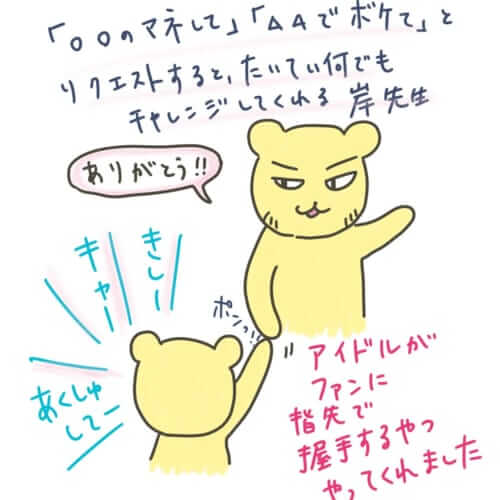 「○○のマネして」「△△でボケて」と
リクエストすると、たいてい何でも
チャレンジしてくれる 岸先生
ありがとう!!
きしー
キャー
あくしゅ
してー
ポンっ!
アイドルが
ファンに
指先で
握手するやつ
やってくれました